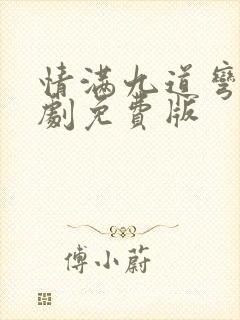 情满九道弯
劇免費版
傅小蔚